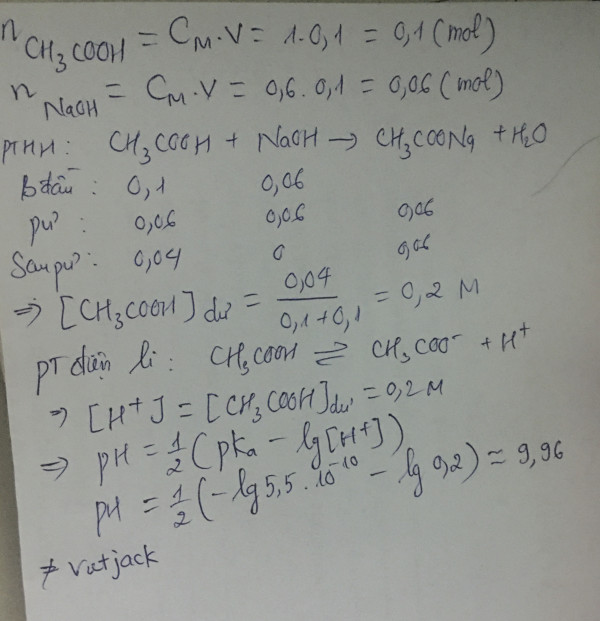 n CH₃COOH = C_M.V = 1.0,1 = 0,1 (mol)
n NaOH = C_M.V = 0,6.0,1 = 0,06 (mol)
PTHH: CH₃COOH + NaOH → CH₃COONa + H₂O
Bđầu: 0,1 0,06
pư: 0,06 0,06 0,06
Sau pư: 0,04 0 0,06
⇒ [CH₃COOH] dư = 0,04 / 0,1+0,1 = 0,2 M
PT điện li: CH₃COOH ⇌ CH₃COO⁻ + H⁺
⇒ [H⁺] = [CH₃COOH] dư = 0,2 M
⇒ pH = 1/2 (pKa - lg[H⁺])
pH = 1/2 (-lg 5,5.10⁻¹⁰ - lg 0,2) ≈ 9,96
≠ Vutjack